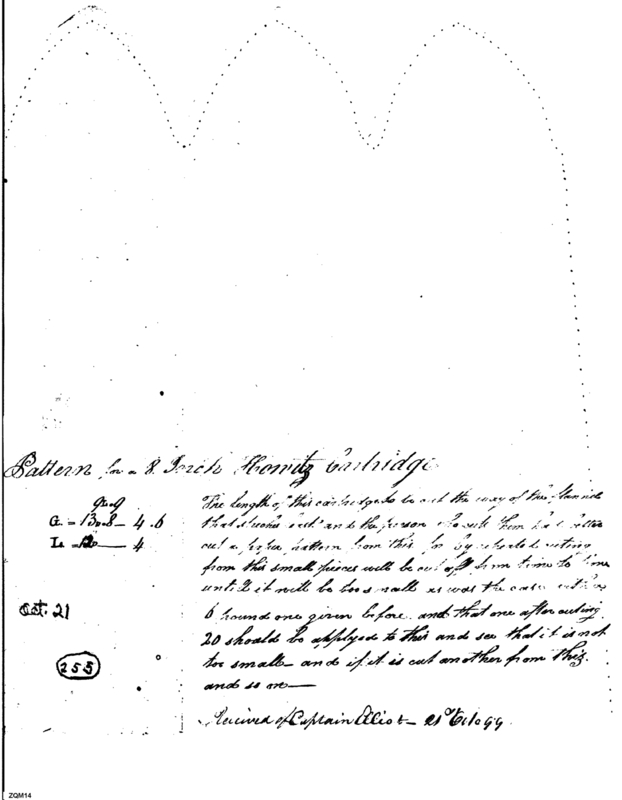 Pattern for a 8 Inch Howitz Cartridge
G = 13 " 8 — 4 . 6
L = 12 — 4
The Length of this cartridge to be cut the way of the flannel
that and the person who cuts them had better
cut a paper pattern from this for by repeated cuting
from this small pieces will be cut off from time to time
until it will be too small as was the case with
6 pound one given before and that one after cuting
20 should be applyed to this and see that it is not
too small — and if it is cut another from this.
and so on —
Oct. 21
255
Recived of Captain Elliot — 21 Oct 1099
ZQM14